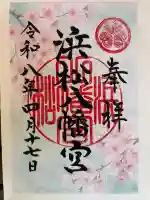 奉拝
浜松八幡宮
令和八年四月十七日